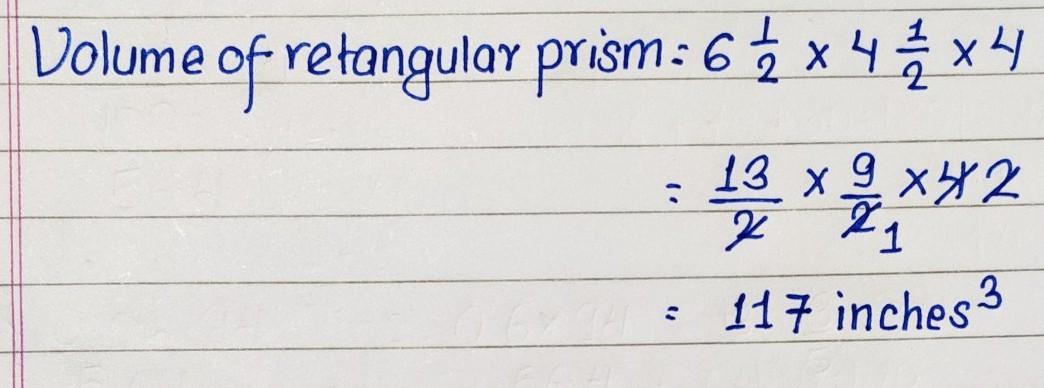 Volume of retangular prism = 6 1/2 x 4 1/2 x 4
= 13/2 x 9/2 1 x 4 2
= 117 inches³